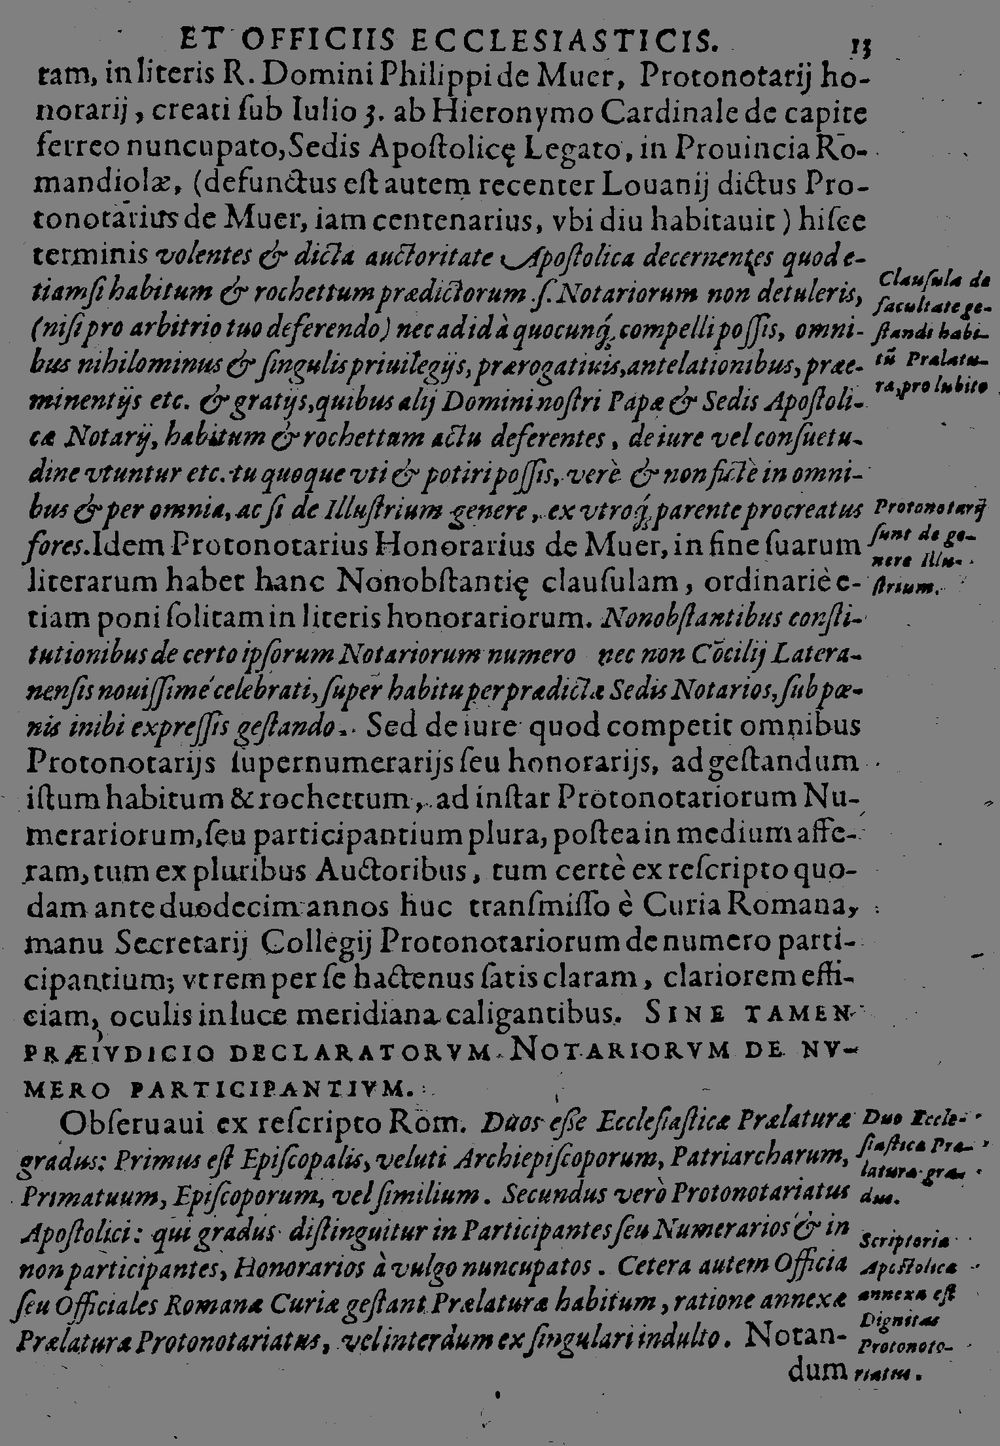 ET OFFICIIS ECCLESIASTICIS. 13
tam, in literis R. Domini Philippi de Muer, Protonotarij ho-
norarij, creati ſub Iulio 3. ab Hieronymo Cardinale de capite
ferreo nuncupato, Sedis Apoſtolicę Legato, in Prouincia Ro-
mandiolæ, (defunctus eſt autem recenter Louanij dictus Pro-
tonotarius de Muer, iam centenarius, vbi diu habitauit) hiſce
terminis volentes & dicta auctoritate Apoſtolica decernentes quod e-
tiamſi habitum & rochettum prædictorum .ſ. Notariorum non detuleris,
(niſi pro arbitrio tuo deferendo) nec ad id à quocunq́; compelli poſſis, omni-
bus nihilominus & ſingulis priuilegijs, prærogatiuis, antelationibus, præe-
minentijs etc. & gratijs, quibus alij Domini noſtri Papæ & Sedis Apoſtoli-
cæ Notarij, habitum & rochettum actu deferentes, de iure vel conſuetu-
dine vtuntur etc. tu quoque vti & potiri poſſis, verè & non fictè in omni-
bus & per omnia, ac ſi de Illuſtrium genere, ex vtroq́; parente procreatus
fores. Idem Protonotarius Honorarius de Muer, in fine ſuarum
literarum habet hanc Nonobſtantię clauſulam, ordinariè e-
tiam poni ſolitam in literis honorariorum. Nonobſtantibus conſti-
tutionibus de certo ipſorum Notariorum numero nec non Cōcilij Latera-
nenſis nouiſſimé celebrati, ſuper habitu per prædictæ Sedis Notarios, ſub pœ-
nis inibi expreſſis geſtando. Sed de iure quod competit omnibus
Protonotarijs ſupernumerarijs ſeu honorarijs, ad geſtandum
iſtum habitum & rochettum, ad inſtar Protonotariorum Nu-
merariorum, ſeu participantium plura, poſtea in medium affe-
ram, tum ex pluribus Auctoribus, tum certè ex reſcripto quo-
dam ante duodecim annos huc tranſmiſſo è Curia Romana,
manu Secretarij Collegij Protonotariorum de numero parti-
cipantium; vt rem per ſe hactenus ſatis claram, clariorem effi-
ciam, oculis in luce meridiana caligantibus. SINE TAMEN
PRÆIVDICIO DECLARATORVM NOTARIORVM DE NV-
MERO PARTICIPANTIVM.
Obſeruaui ex reſcripto Rom. Duos eſſe Eccleſiaſticæ Prælaturæ
gradus: Primus eſt Epiſcopalis, veluti Archiepiſcoporum, Patriarcharum,
Primatuum, Epiſcoporum, vel ſimilium. Secundus verò Protonotariatus
Apoſtolici: qui gradus diſtinguitur in Participantes ſeu Numerarios & in
non participantes, Honorarios à vulgo nuncupatos. Cetera autem Officia
ſeu Officiales Romanæ Curiæ geſtant Prælaturæ habitum, ratione annexæ
Prælaturæ Protonotariatus, vel interdum ex ſingulari indulto. Notan-
dum
Clauſula de
facultate ge-
ſtandi habi-
tū Prælatu-
ra, pro lubito
Protonotarij
ſunt de ge-
nere Illu-
ſtrium.
Duo Eccle-
ſiaſticæ Præ-
laturæ gra-
dus.
Scriptoria
Apoſtolica
annexa eſt
Dignitas
Protonoto-
riatus.